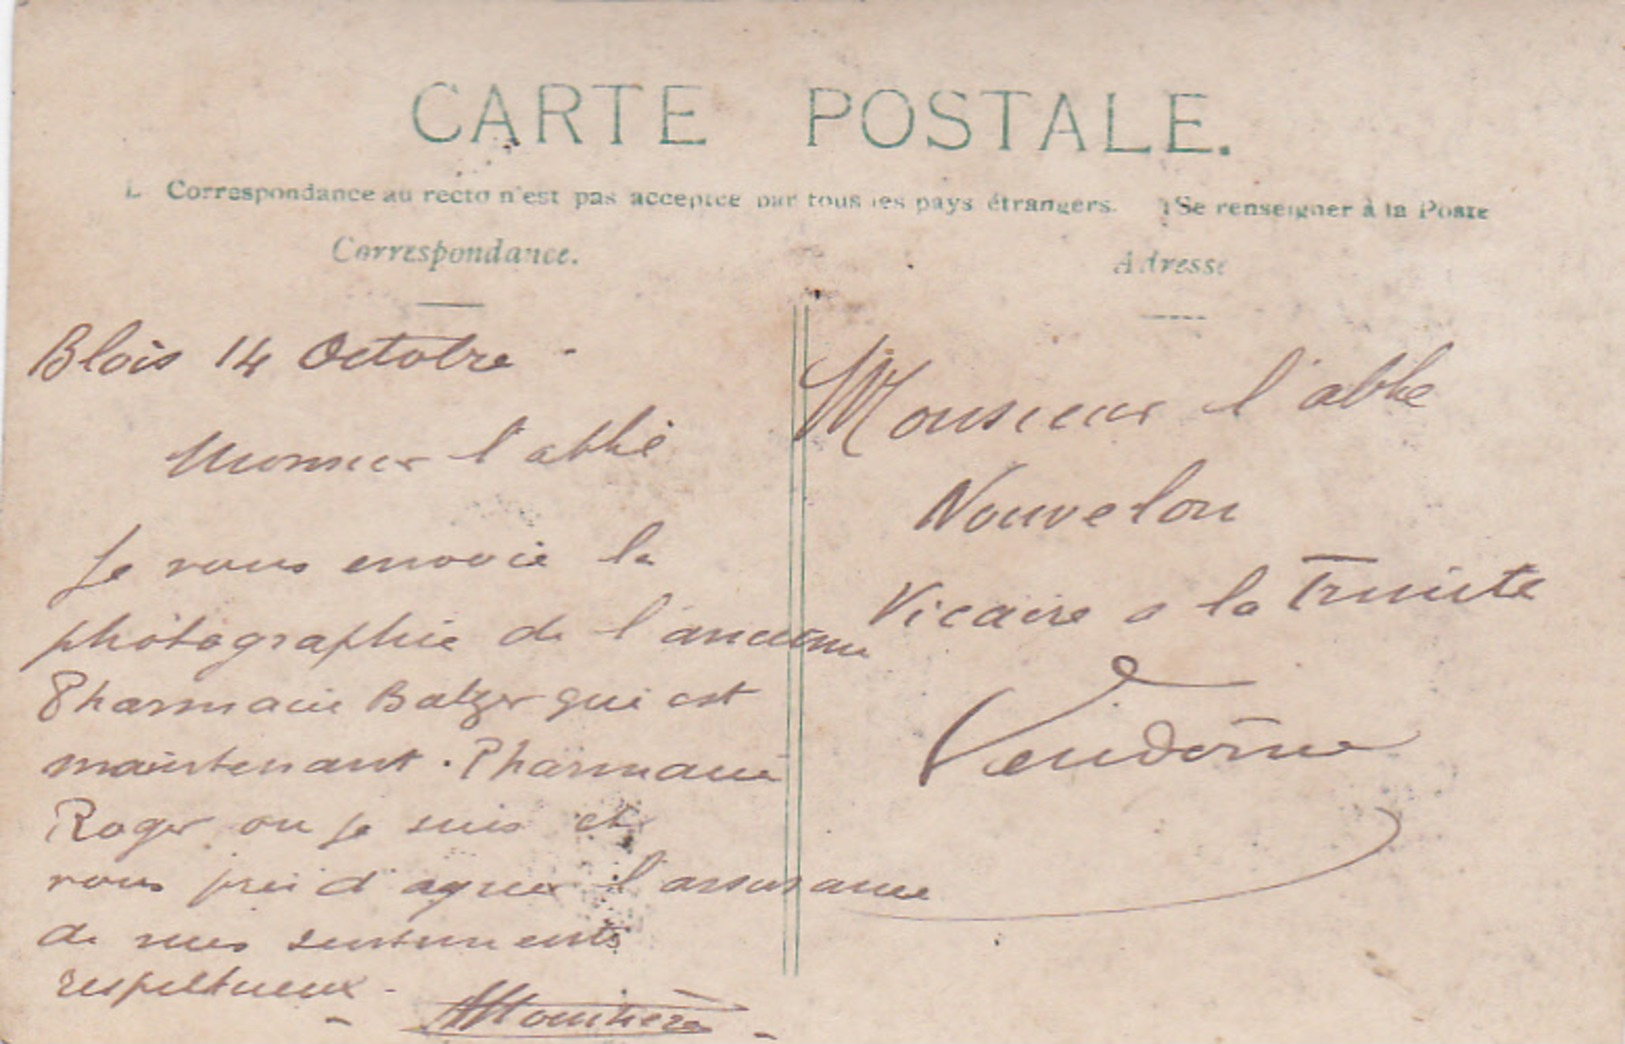 CARTE POSTALE.
Correspondance au recto n'est pas acceptée par tous les pays étrangers. (Se renseigner à la Poste
Correspondance.
Blois 14 Octobre -
Monsieur l'abbé
Je vous envoie la
photographie de l'ancienne
Pharmacie Balzer qui est
maintenant. Pharmacie
Roger ou je suis et
vous prei d'agreer l'assurance
de mes sentiments
respectueux -
Adresse
Monsieur l'abbe
Nouvelon
Vicaire a la Trinite
Vendome